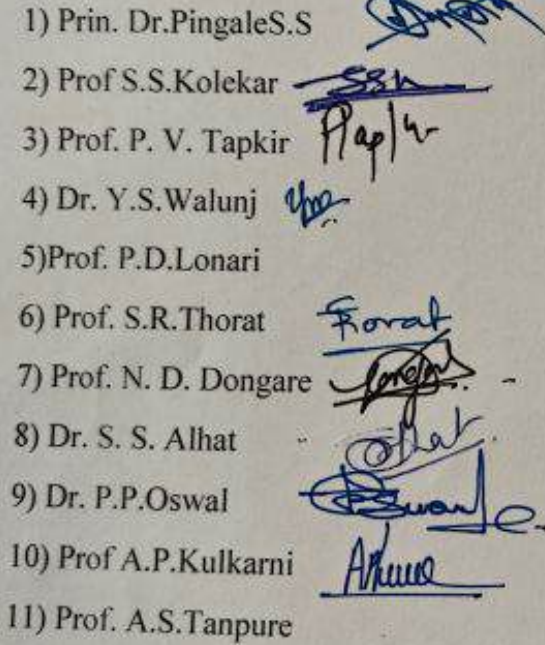 1) Prin. Dr.PingaleS.S
2) Prof S.S.Kolekar SSK
3) Prof. P. V. Tapkir
4) Dr. Y.S.Walunj
5)Prof. P.D.Lonari
6) Prof. S.R.Thorat
7) Prof. N. D. Dongare
8) Dr. S. S. Alhat
9) Dr. P.P.Oswal
10) Prof A.P.Kulkarni
11) Prof. A.S.Tanpure